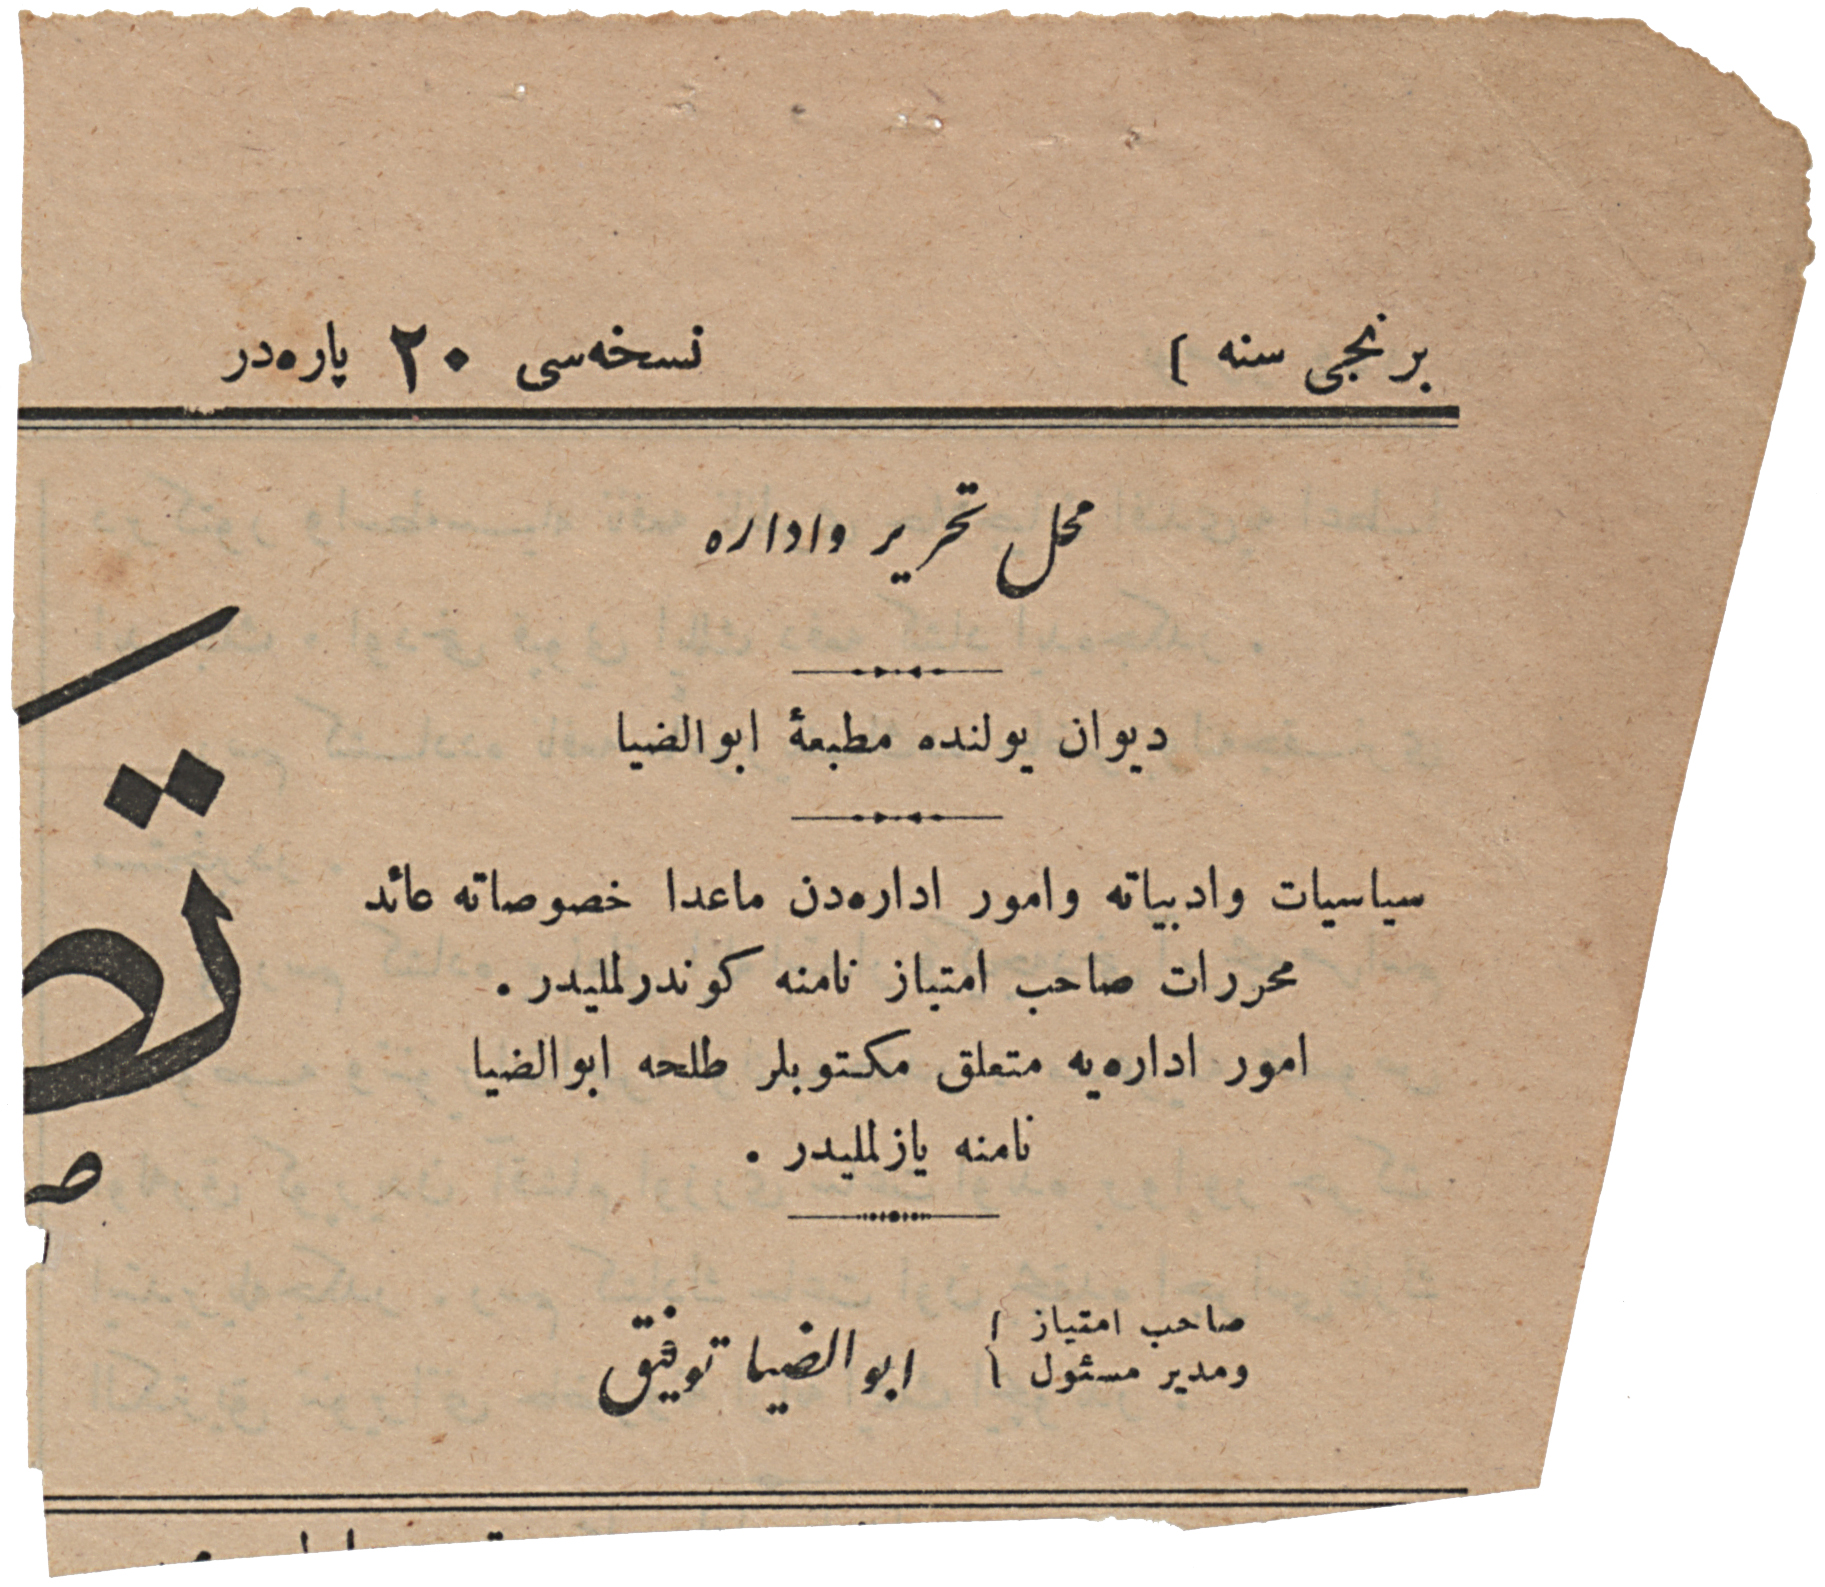 برنجی سنه [
نسخه‌سی ٢٠ پاره‌در
محل تحریر واداره
دیوان یولنده مطبعهٔ ابوالضیا
سیاسیات وادبیاته وامور اداره‌دن ماعدا خصوصاته عائد
محررات صاحب امتیاز نامنه کوندرلملیدر .
امور اداره‌یه متعلق مکتوبلر طلحه ابوالضیا
نامنه یازلملیدر .
صاحب امتیاز
ومدیر مسئول
ابوالضیا توفیق